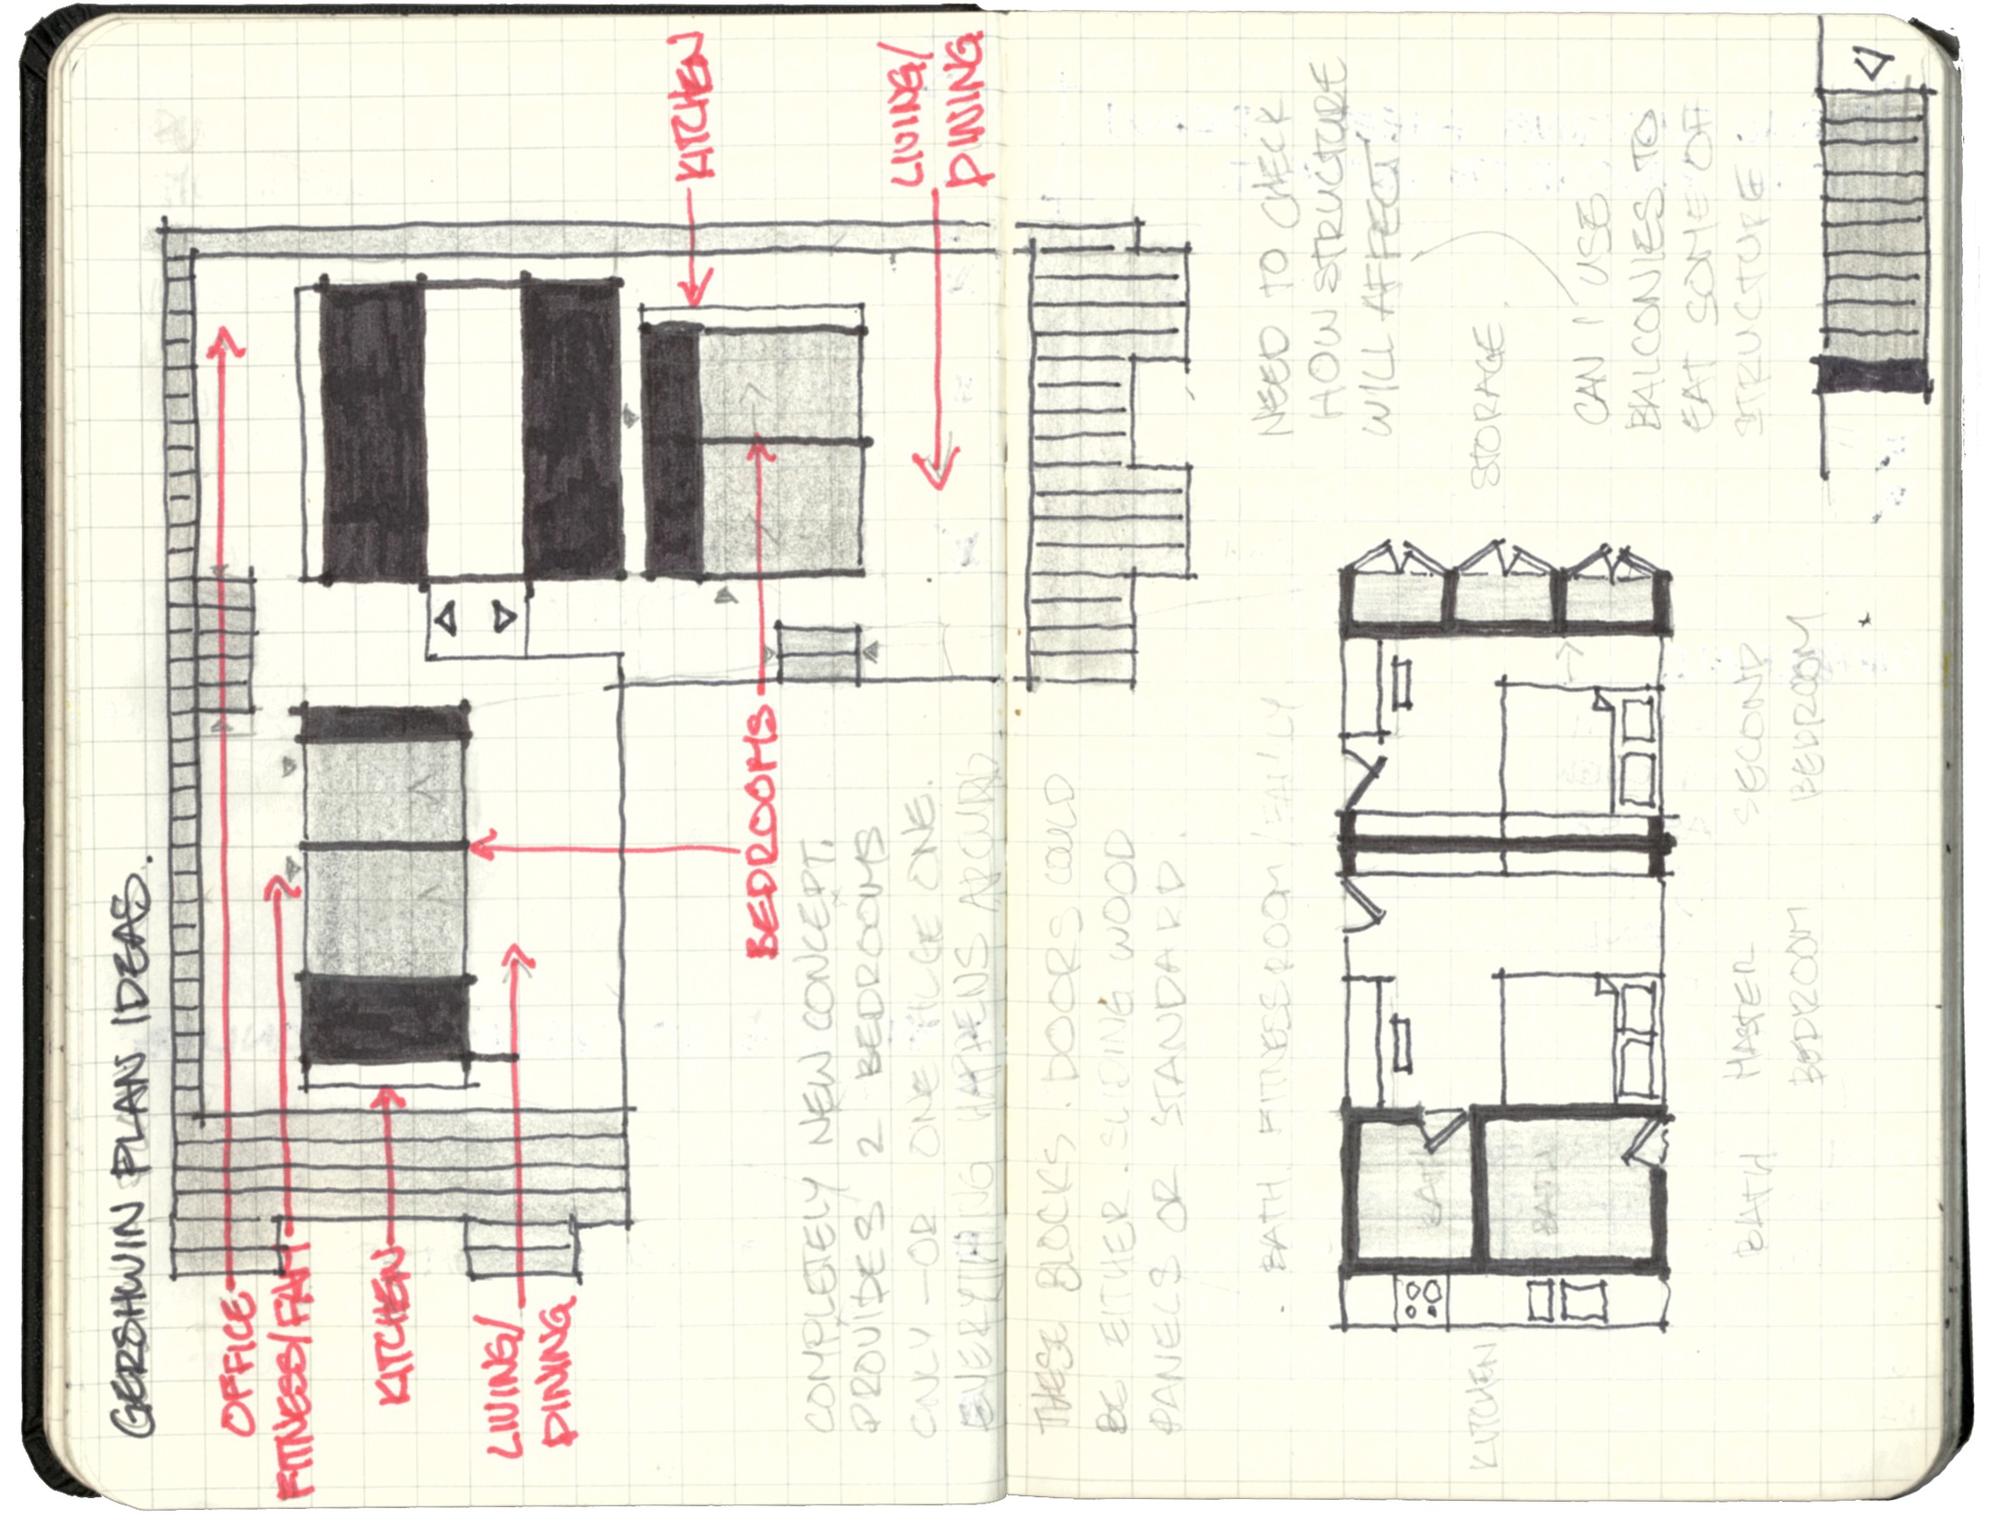 GERSHWIN PLAN IDEAS.
OFFICE
FITNESS/FAM
KITCHEN
LIVING/
DINING
KITCHEN
LIVING/
DINING
BEDROOMS
COMPLETELY NEW CONCEPT.
PROVIDES 2 BEDROOMS
ONLY - OR ONE ONE.
EVERYTHING HAPPENS AROUND
THESE BLOCKS. DOORS COULD
BE EITHER SLIDING WOOD
PANELS OR STANDARD
NEED TO CHECK
HOW STRUCTURE
WILL AFFECT
STORAGE
CAN I USE
BALCONIES TO
EAT SOME OF
STRUCTURE
BATH FITNESS ROOM / FAMILY
BATH
BATH
KITCHEN
BATH MASTER SECOND
BEDROOM BEDROOM